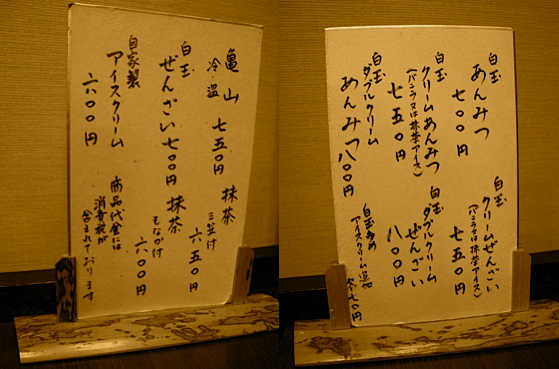 白玉 あんみつ
七〇〇円
白玉 クリームぜんざい
(バニラ又は抹茶アイス)
七五〇円
白玉 クリームあんみつ
(バニラ又は抹茶アイス)
七五〇円
白玉 ダブルクリーム
ぜんざい
八〇〇円
白玉 ダブルクリーム
あんみつ 八〇〇円
アイスクリーム追加
亀山
冷・温 七五〇円
抹茶
六五〇円
白玉 ぜんざい 七〇〇円
抹茶
もなか付
六〇〇円
自家製
アイスクリーム
六〇〇円
商品代金には
消費税が
含まれております